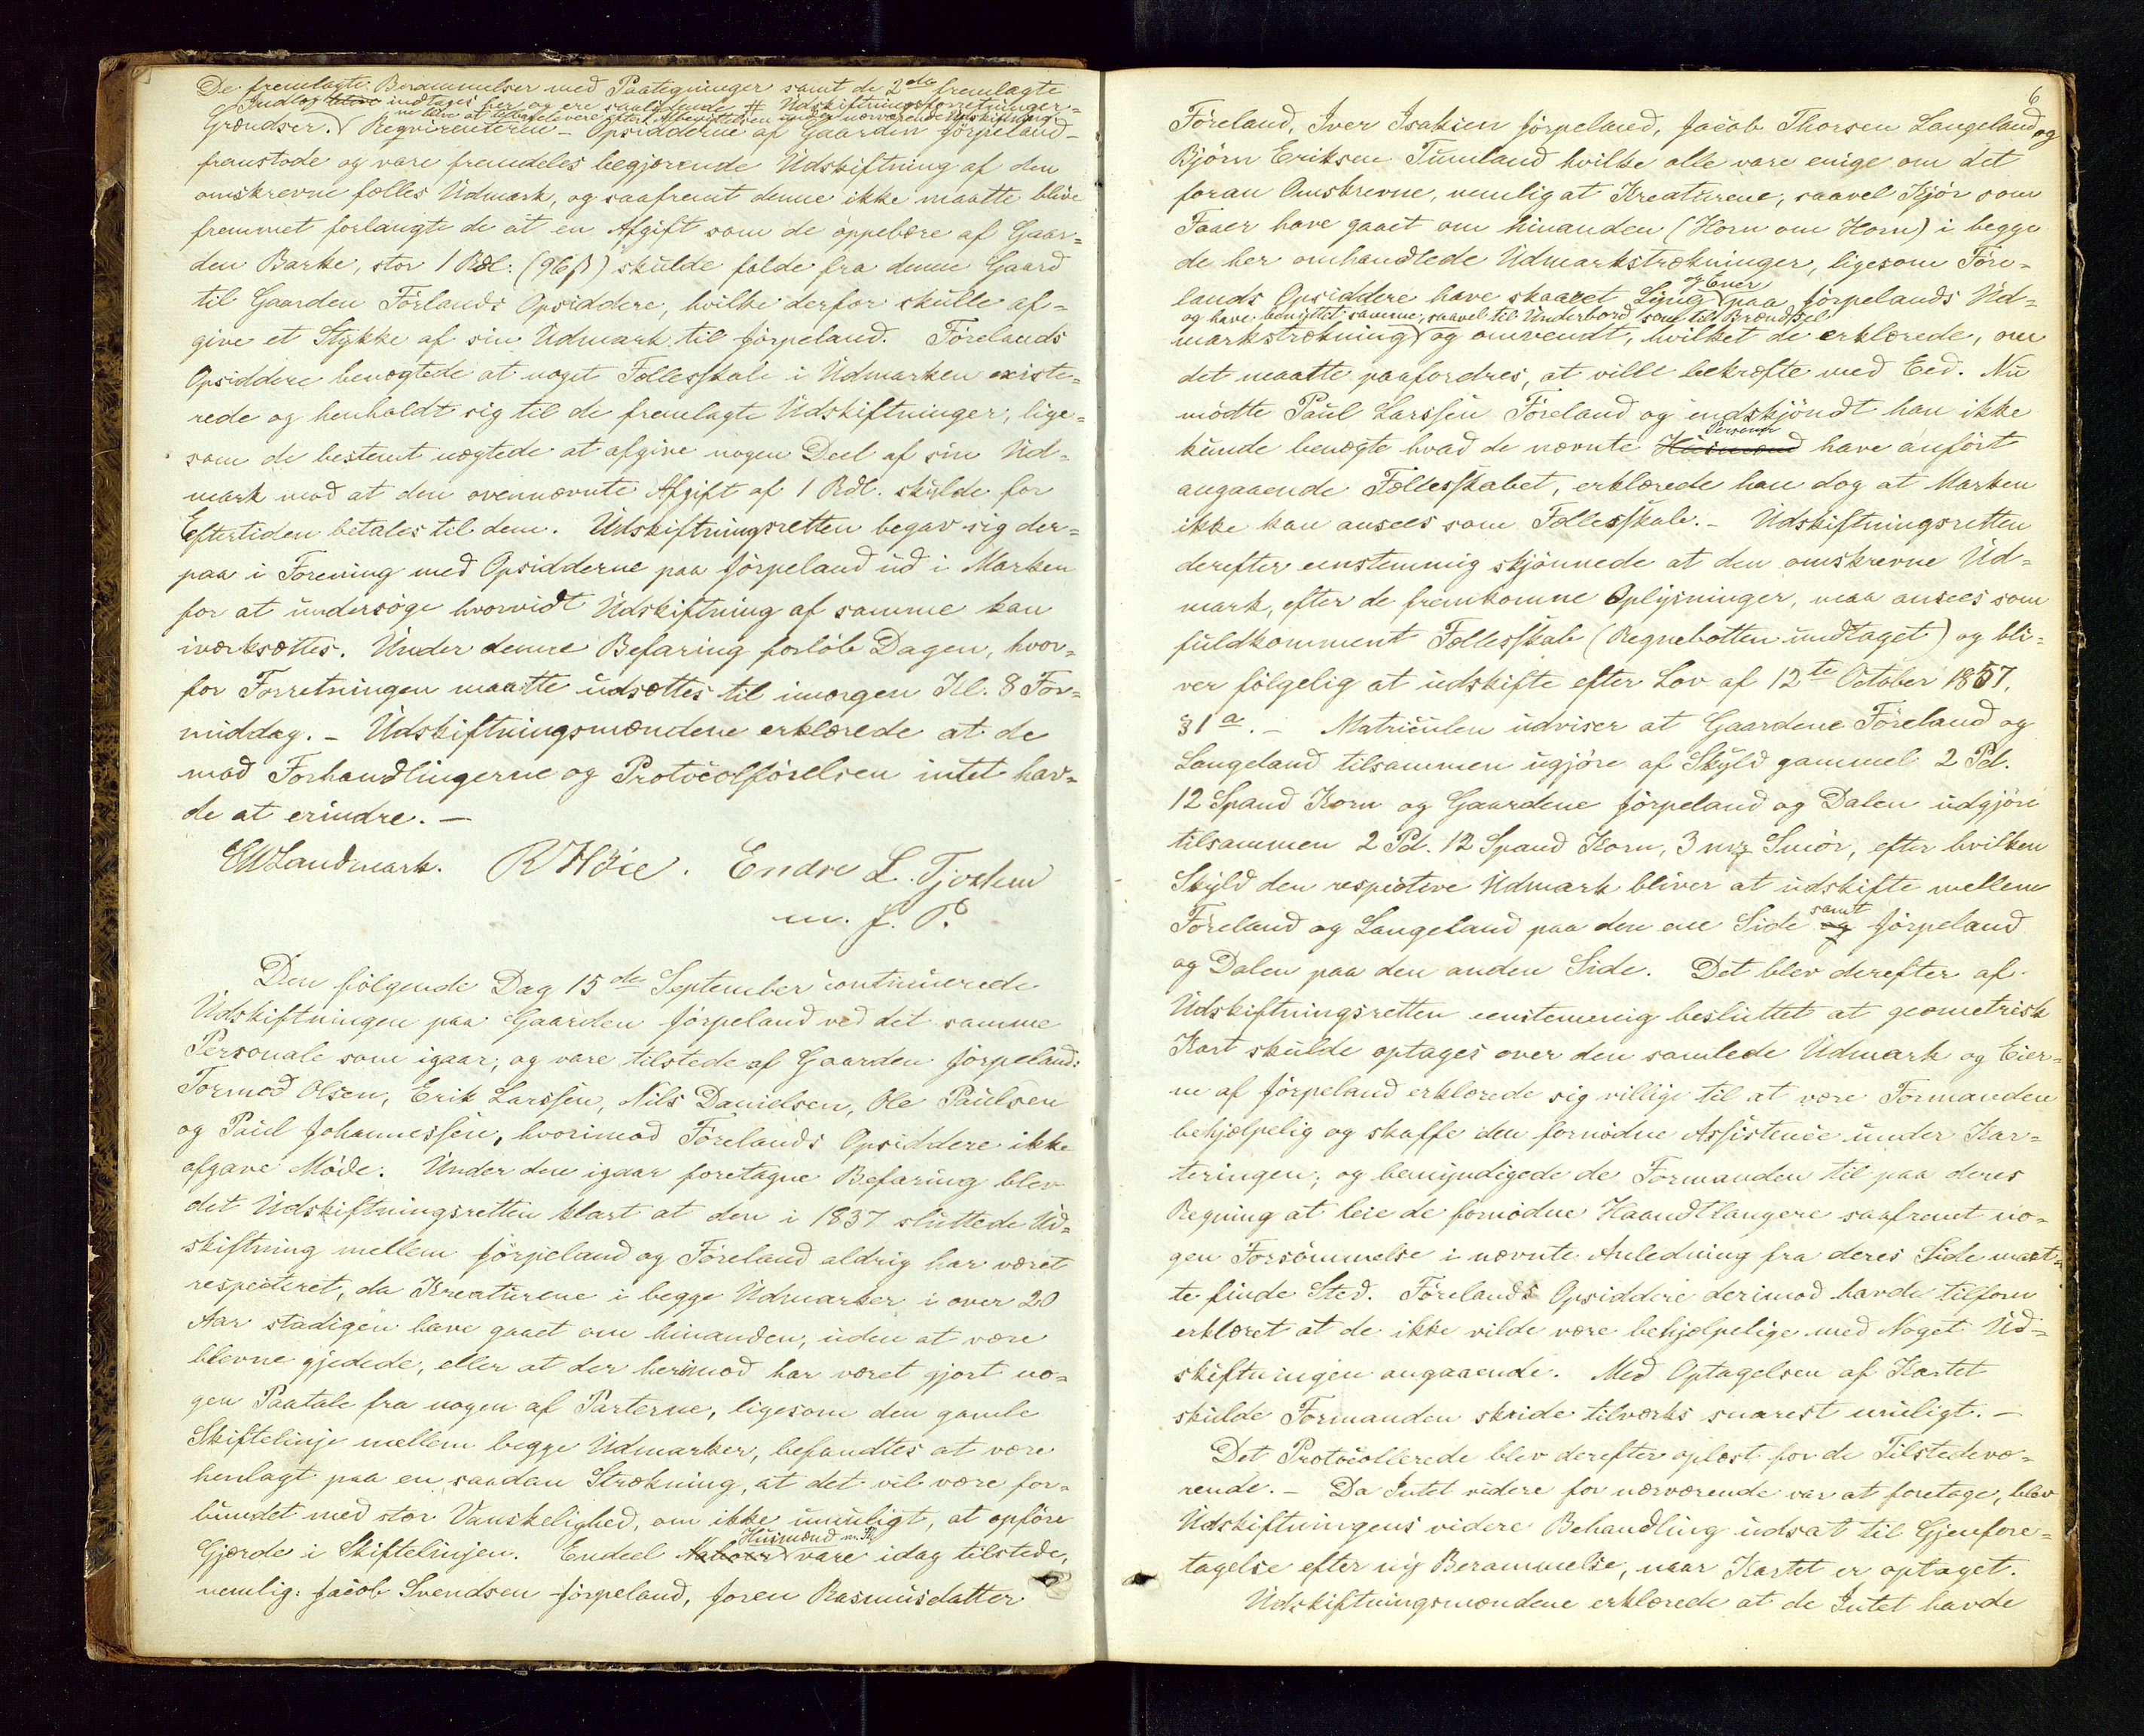 De fremlagte Berammelser med Paategninger samt de 2de fremlagte
Indlæg blive indtages her og ere saalydende # Udskiftningsforretninger-
ne blev at tilbagelevere efter Afbenyttelsen under nærværende Udskiftning.
Grændser. Reqvirenterne - Opsidderne af Gaarden Jörpeland -
fremstode og vare fremdeles begjærende Udskiftning af den
omskrevne fælles Udmark, og saafremt denne ikke maatte blive
fremmet forlangte de at en Afgift som de oppebære af Gaar-
den Barke, stor 1 Rdl: (96 ß) skulde falde fra denne Gaard
til Gaarden Förlands Opsiddere, hvilke derfor skulle af-
give et Stykke af sin Udmark til Jörpeland. Förelands
Opsiddere benægtede at noget Fællesskab i Udmarken existe-
rede og henholdt sig til de fremlagte Udskiftninger, lige-
som de bestemt nægtede at afgive nogen Deel af sin Ud-
mark mod at den ovennævnte Afgift af 1 Rdl. skulde for
Eftertiden betales til dem. Udskiftningsretten begav sig der-
paa i Forening med Opsidderne paa Jörpeland ud i Marken
for at undersöge hvorvidt Udskiftning af samme kan
iværksættes. Under denne Befaring forlöb Dagen, hvor-
for Forretningen maatte udsættes til imorgen Kl. 8 For-
middag. - Udskiftningsmændene erklærede at de
mod Forhandlingerne og Protocolförelsen intet hav-
de at erindre. -
EWLandmark. R Höie. Endre L. Tjostem
m. f. P.
Den fölgende Dag 15de September continuerede
Udskiftningen paa Gaarden Jörpeland ved det samme
Personale som igaar, og vare tilstede af Gaarden Jörpeland:
Tormod Olsen, Erik Larssen, Nils Danielsen, Ole Paulsen
og Paul Johannessen, hvorimod Förelands Opsiddere ikke
afgave Möde. Under den igaar foretagne Befaring blev
det Udskiftningsretten klart at den i 1837 sluttede Ud-
skiftning mellem Jörpeland og Föreland aldrig har været
respecteret, da Kreaturene i begge Udmarker i over 20
Aar stadigen have gaaet om hinanden, uden at være
blevne gjedede, eller at der herimod har været gjort no-
gen Paatale fra nogen af Parterne, ligesom den gamle
Skiftelinje mellem begge Udmarker, befandtes at være
henlagt paa en saadan Strækning, at det vil være for-
bundet med stor Vanskelighed, om ikke umuligt, at opföre
Husmænd m. Fl
Gjærde i Skiftelinjen. Endeel Naboer vare idag tilstede,
nemlig: Jacob Svendsen Jörpeland, Joren Rasmusdatter
6
Föreland, Iver Isaksen Jörpeland, Jacob Thorsen Langeland og
Björn Eriksen Tumland hvilke alle vare enige om det
foran Omskrevne, nemlig at Kreaturene, saavel Kjör som
Faaer have gaaet om hinanden (Horn om Horn) i begge
de her omhandlede Udmarkstrækninger, ligesom Före-
og Ener
lands Opsiddere have skaaret Lyng paa Jörpelands Ud-
og have benyttet samme, saavel til Underbord som til Brændsel
markstrækning og omvendt, hvilket de erklærede, om
det maatte paafordres, at ville bekræfte med Eed. Nu
mödte Paul Larssen Föreland og endskjöndt han ikke
Personer
kunde benægte hvad de nævnte Husmænd have anfört
angaaende Fællesskabet, erklærede han dog at Marken
ikke kan ansees som Fællesskab. - Udskiftningsretten
derefter eenstemmig skjönnede at den omskrevne Ud-
mark, efter de fremkomne Oplysninger, maa ansees som
fuldkomment Fællesskab (Regnebotten undtaget) og bli-
ver fölgelig at udskifte efter Lov af 12te October 1857,
§ 1 a. - Matriculen udviser at Gaardene Föreland og
Langeland tilsammen ugjöre af Skyld gammel 2 Pd.
12 Spand Korn og Gaardene Jörpeland og Dalen udgjöre
tilsammen 2 Pd. 12 Spand Korn, 3 mrk Smör, efter hvilken
Skyld den respective Udmark bliver at udskifte mellem
samt
Föreland og Langeland paa den ene Side og Jörpeland
og Dalen paa den anden Side. Det blev derefter af
Udskiftningsretten eenstemmig besluttet at geometrisk
Kart skulde optages over den samlede Udmark og Eier-
ne af Jörpeland erklærede sig villige til at være Formanden
behjælpelig og skaffe den fornödne Assistence under Kar-
teringen, og bemyndigede de Formanden til paa deres
Regning at leie de fornödne Haandtlangere saafremt no-
gen Forsömmelse i nævnte Anledning fra deres Side maat-
te finde Sted. Förelands Opsiddere derimod havde tilforn
erklæret at de ikke vilde være behjælpelige med Noget Ud-
skiftningen angaaende. Med Optagelsen af Kartet
skulde Formanden skride tilværks snarest muligt. -
Det Protocollerede blev derefter oplæst for de Tilstedevæ-
rende. - Da Intet videre for nærværende var at foretage, blev
Udskiftningens videre Behandling udsat til Gjenfore-
tagelse efter ny Berammelse, naar Kartet er optaget.
Udskiftningsmændene erklærede at de Intet havde